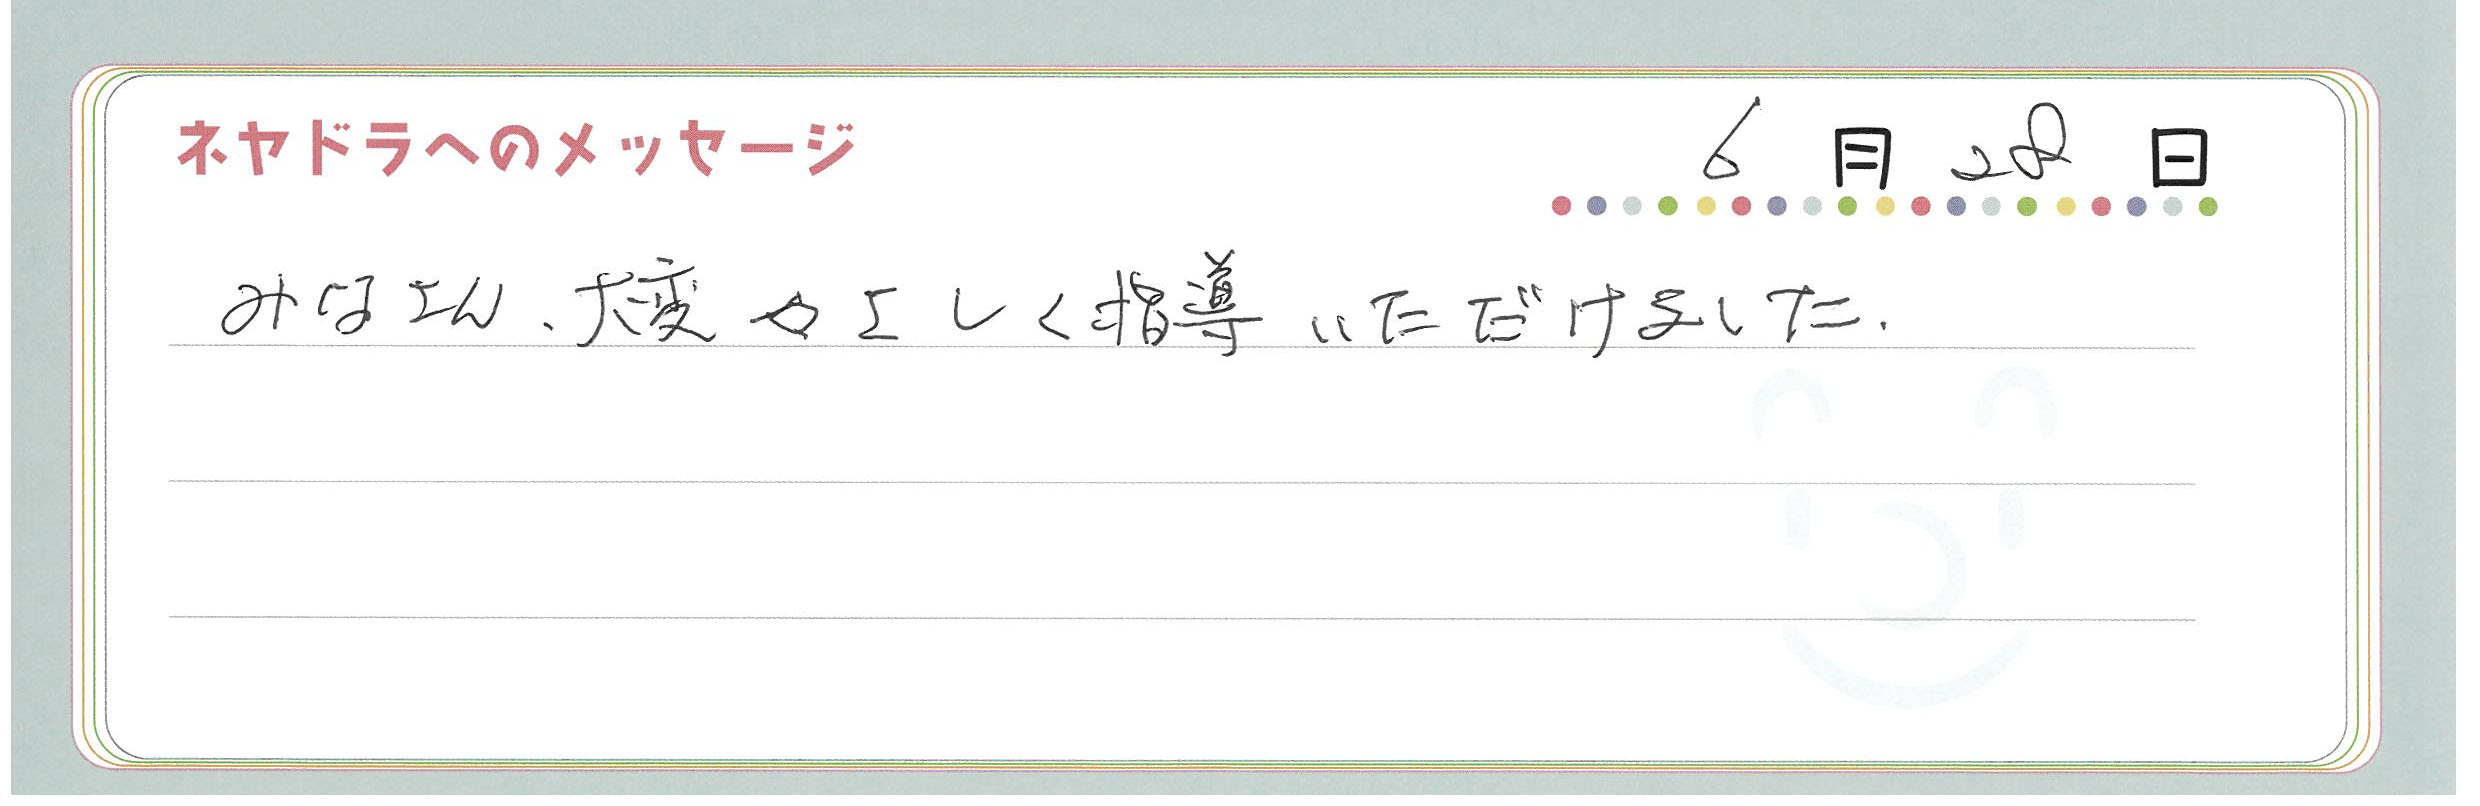 ネヤドラへのメッセージ
6月28日
みなさん、大変やさしく指導いただけました.